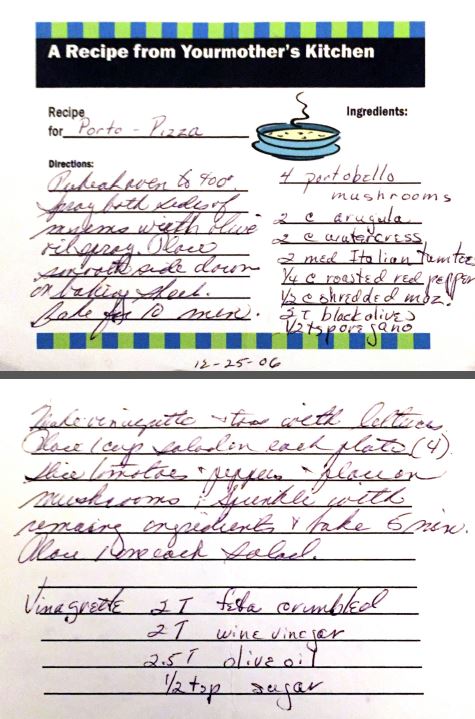 A Recipe from Yourmother's Kitchen
Recipe
for Porto - Pizza
Directions:
Preheat oven to 400°.
Spray both sides of
mushrms with olive
oil spray. Place
smooth side down
on baking sheet.
Bake for 10 min.
Ingredients:
4 portobello
mushrooms
2 c arugula
2 c watercress
2 med Italian
1/4 c roasted red pepper
1/2 c shredded moz.
2 T black olives
1/2 tsp oregano
12-25-06
Make vinagrette + toss with lettuces
Place 1 cup salad on each plate (4).
Slice tomatoes + peppers + place on
mushrooms; Sprinkle with
remaing ingredients & bake 5 min.
Place 1 on each salad.
Vinagrette 2 T feta crumbled
2 T wine vinegar
2.5 T olive oil
1/2 tsp sugar